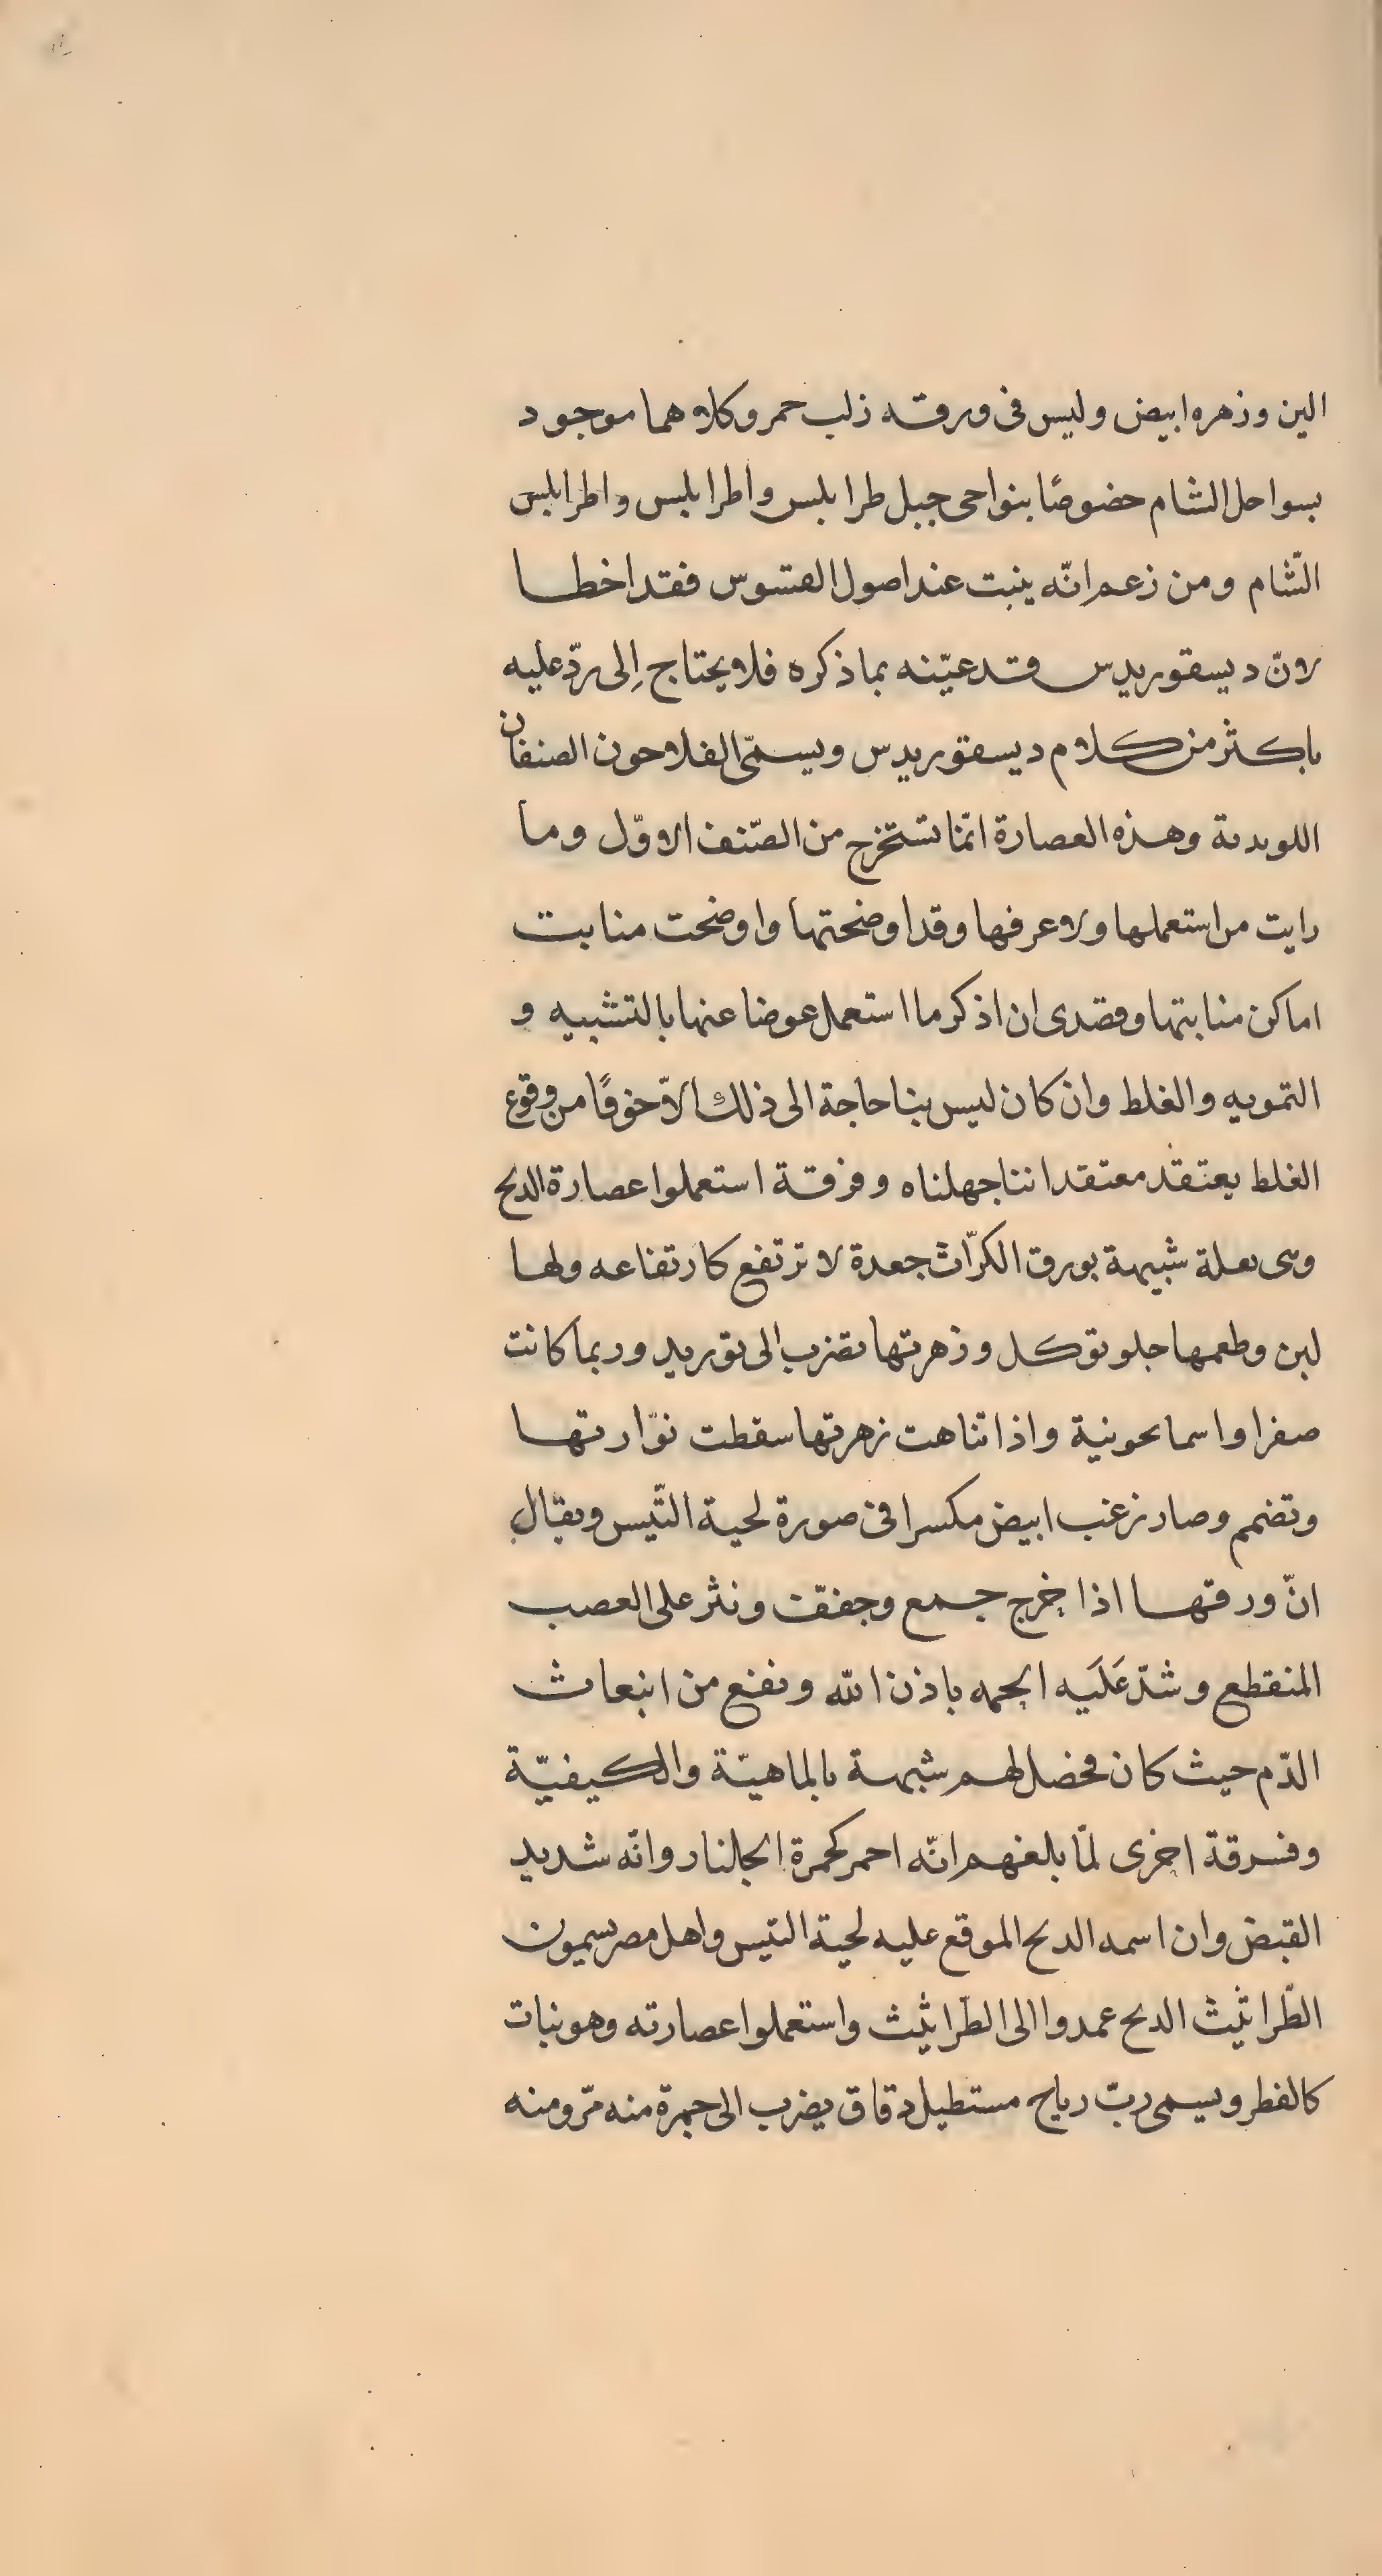 الين وزهره ابيض وليس فى ورقه زلب حمر وكلاهما موجود
بسواحل الشام حضوصًا بنواحى جبل طرابلس واطرابلس واطرابلس
الشّام ومن زعم انّه ينبت عند اصول القسوس فقد اخطا
لانّ ديسقوريدس قد عيّنه بما ذكره فلا يحتاج إلى ردّ عليه
باكثر من كلام ديسقوريدس ويسمّى الفلاحون الصنفان
وهذه العصارة انّما تستخرج من الصّنف الاوّل وما
رايت من استعملها ولا عرفها وقد اوضحتها واوضحت منابت
اماكن منابتها وقصدى ان اذكر ما استعمل عوضا عنها بالتشبيه و
التمويه والغلط وان كان ليس بنا حاجة الى ذلك الّا خوفًا من وقوع
الغلط يعتقد معتقد اننا جهلناه وفرقة استعملوا عصارة الدبح
وهى بقلة شبيهة بورق الكرّاث جعدة لا ترتفع كارتفاعه ولها
لبن وطعمها حلو توكل وزهرتها تضرب الى توريد وربما كانت
صفرا واسمانجونية واذا تناهت زهرتها سقطت نوّارتها
وتضمم وصار زغب ابيض مكسرا فى صورة لحية التّيس ويقال
انّ ورقها اذا خرج جمع وجفف ونثر على العصب
المنقطع وشدّ عَلَيه الجمه باذن الله ونفع من انبعاث
الدّم حيث كان فحضل لهم شبهة بالماهيّة والكيفيّة
وفرقة اخرى لمّا بلغهم انّه احمر كحمرة الجلنار وانّه شديد
القبض وان اسمه الدبح الموقع عليه لحية التيس واهل مصر يسمون
الطّراثيث الدبح عمدوا الى الطّراثيث واستعملوا عصارته وهو نبات
كالفطر ويسمى ربّ رياح مستطيل دقاق يضرب الى حمرة منه مرّ ومنه